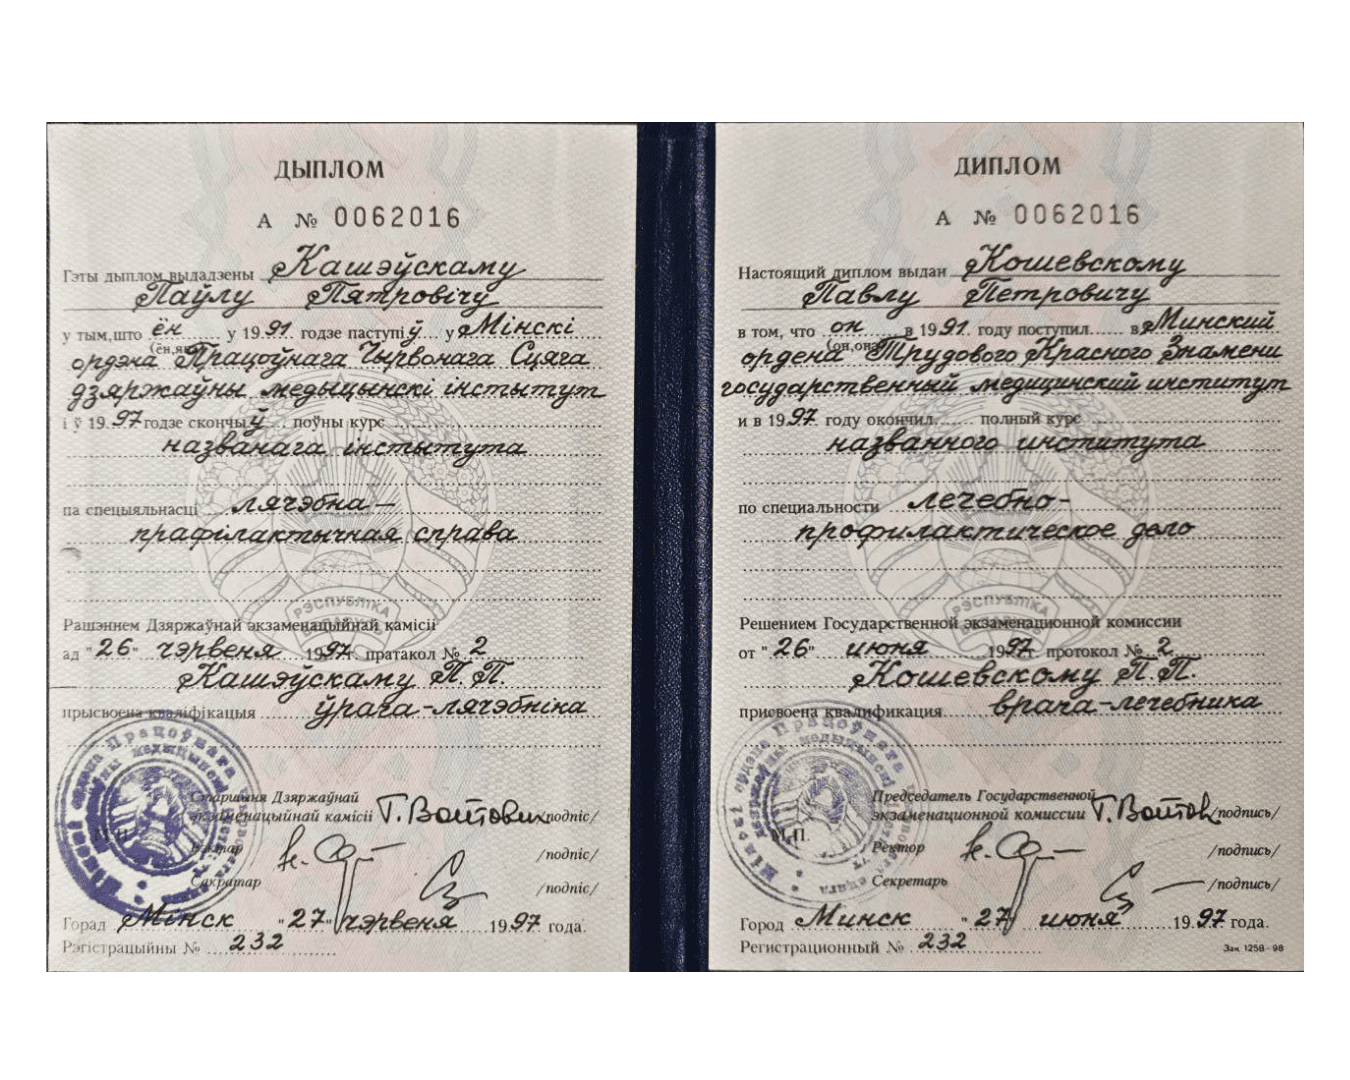 ДЫПЛОМ
А № 0062016
Гэты дыплом выдадзены Кашэўскаму
Паўлу Пятровічу
у тым,што ён у 1991 годзе паступіў у Мінскі
(ён,яна)
ордэна Працоўнага Чырвонага Сцяга
дзяржаўны медыцынскі інстытут
і ў 1997 годзе скончыў поўны курс
названага інстытута
па спецыяльнасці лячэбна-
прафілактычная справа
РЭСПУБЛІКА
Рашэннем Дзяржаўнай экзаменацыйнай камісіі
ад "26" чэрвеня 1997 г. пратакол № 2
Кашэўскаму П.П.
прысвоена кваліфікацыя ўрача-лячэбніка
Старшыня Дзяржаўнай
экзаменацыйнай камісіі Г. Вайтовіч /подпіс/
М.П.
Рэктар /подпіс/
Сакратар /подпіс/
Горад Мінск "27" чэрвеня 1997 года.
Рэгістрацыйны № 232
ДИПЛОМ
А № 0062016
Настоящий диплом выдан Кошевскому
Павлу Петровичу
в том, что он в 1991 году поступил в Минский
(он,она)
ордена Трудового Красного Знамени
государственный медицинский институт
и в 1997 году окончил полный курс
названного института
по специальности лечебно-
профилактическое дело
РЭСПУБЛІКА
Решением Государственной экзаменационной комиссии
от "26" июня 1997 г. протокол № 2
Кошевскому П.П.
присвоена квалификация врача-лечебника
Председатель Государственной
экзаменационной комиссии /подпись/
М.П.
Ректор /подпись/
Секретарь /подпись/
Город Минск "27" июня 1997 года.
Регистрационный № 232
Зак. 1258 - 98